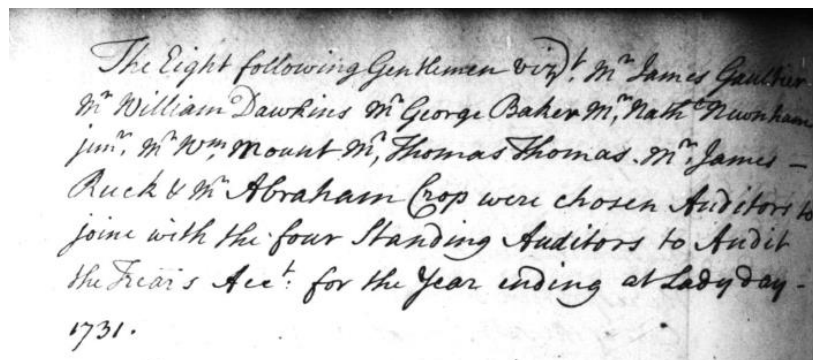 The Eight following Gentlemen vizt. Mr James Gaultier
Mr William Dawkins Mr George Baker Mr. Nathl Newnham
junr. Mr Wm. Mount Mr. Thomas Thomas. Mr. James -
Ruck & Mr Abraham Crop were chosen Auditors to
joine with the four Standing Auditors to Audit
the Trears Acct: for the Year ending at Lady day -
1731.